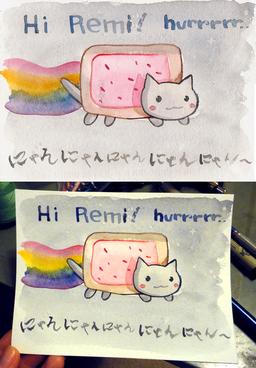 Hi Remi! hurrrrr..
にゃん にゃん にゃん にゃん にゃん〜
Hi Remi! hurrrrr..
にゃん にゃん にゃん にゃん にゃん〜